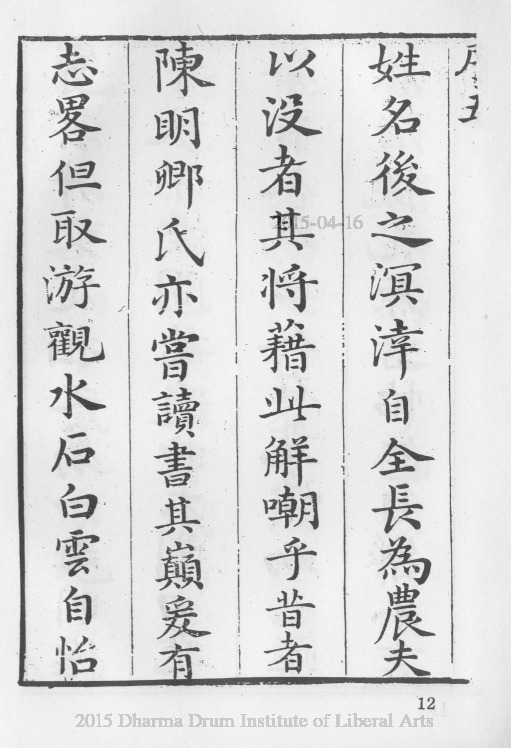 序五
姓名後之溟涬自全長為農夫
以没者其将藉此解嘲乎昔者
陳明卿氏亦嘗讀書其巔爰有
志畧但取游觀水石白雲自怡
2015-04-16
12
2015 Dharma Drum Institute of Liberal Arts